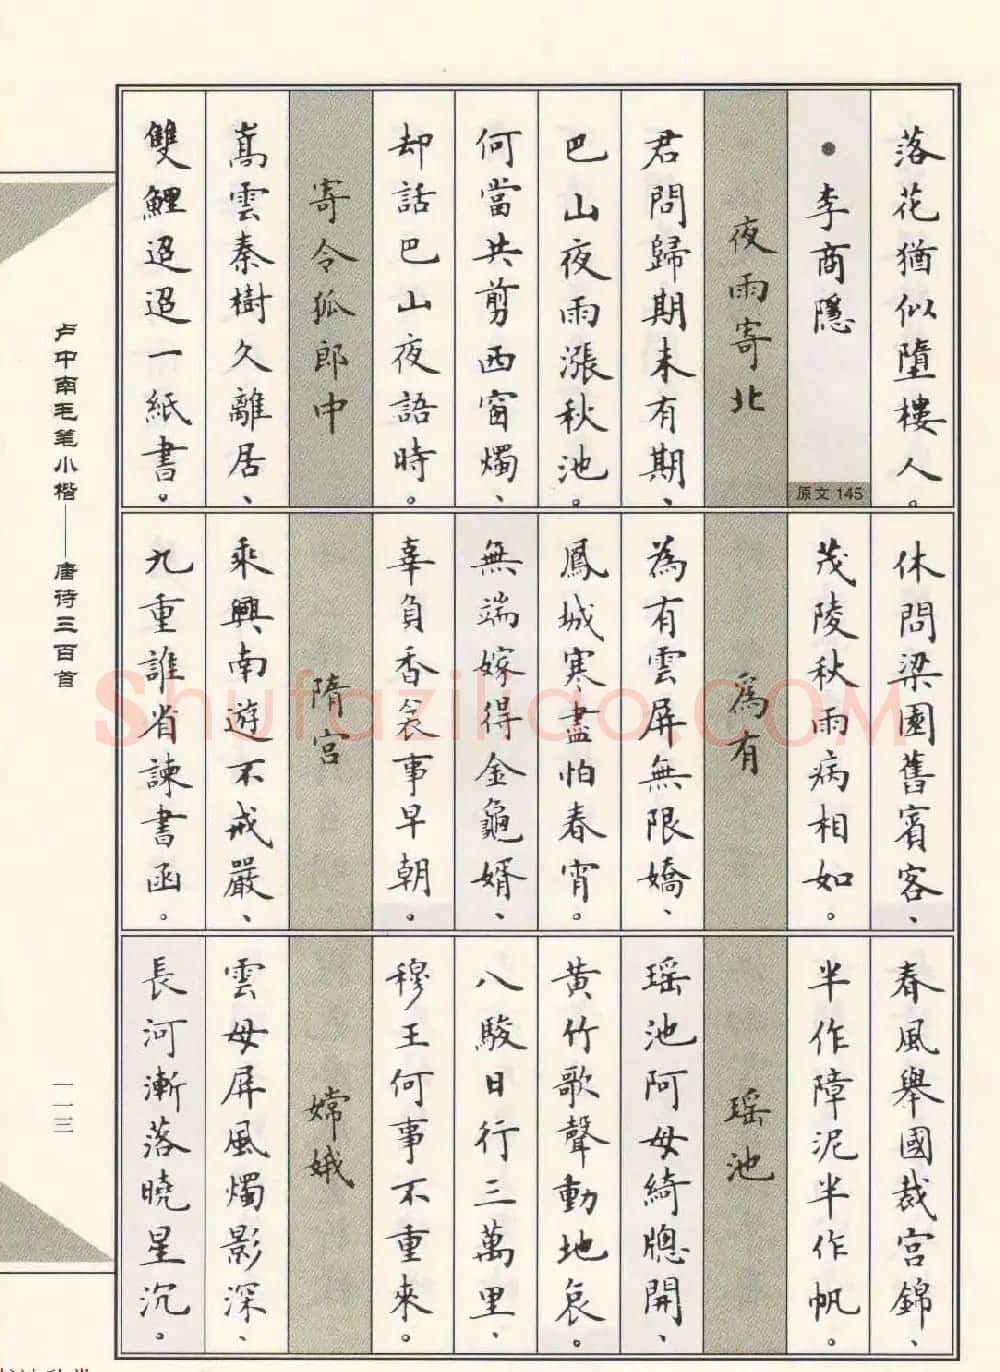 落花猶似墮樓人。
●李商隱
原文 145
夜雨寄北
君問歸期未有期、
巴山夜雨漲秋池。
何當共剪西窗燭、
却話巴山夜語時。
寄令狐郎中
嵩雲秦樹久離居、
雙鯉迢迢一紙書。
休問梁園舊賓客、
茂陵秋雨病相如。
爲有
為有雲屏無限嬌、
鳳城寒盡怕春宵。
無端嫁得金龜婿、
辜負香衾事早朝。
隋宫
乘興南遊不戒嚴、
九重誰省諫書函。
春風舉國裁宫錦、
半作障泥半作帆。
瑶池
瑶池阿母綺牕開、
黄竹歌聲動地哀。
八駿日行三萬里、
穆王何事不重來。
嫦娥
雲母屏風燭影深、
長河漸落曉星沉。
卢中南毛笔小楷——唐诗三百首
一一三
Shufaziliao.COM